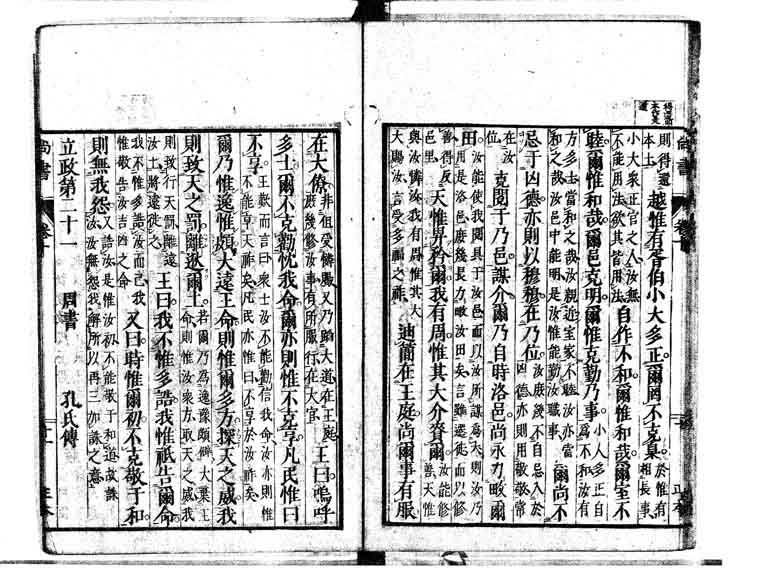 則得還本土越惟有胥伯小大多正爾罔不克臬於惟有相長事
小大衆正官之人汝無不能用法欲其皆用法自作不和爾惟和哉爾室不
睦爾惟和哉爾邑克明爾惟克勤乃事小人多正自爲不和汝有
方多士當和之哉汝親近室家不睦汝亦當和之哉汝邑中能明是汝惟能勤汝職事爾尚不
忌于凶德亦則以穆穆在乃位汝庶幾不自忌入於凶德亦則用敬敬常
在汝位克閱于乃邑謀介爾乃自時洛邑尚永力畋爾
田汝能使我閱具于汝邑而以汝所謀爲大則汝乃用是洛邑庶幾長力畋汝田矣言雖遷徙而以修
善得反邑里天惟畀矜爾我有周惟其大介賚爾汝能修善天惟
與汝憐汝我有周惟其大大賜汝言受多福之祚迪簡在王庭尚爾事有服
尚書
卷十
在大僚非但受憐賜又乃蹈大道在王庭庶幾修汝事有所服行在大官王曰嗚呼
多士爾不克勸忱我命爾亦則惟不克享凡民惟曰
不享王歎而言曰衆士汝不能勸信我命汝亦則惟不能享天祚矣凡民亦惟曰不享於汝祚矣
爾乃惟逸惟頗大遠王命則惟爾多方探天之威我
則致天之罰離逖爾土若爾乃爲逸豫頗僻大棄王命則惟汝衆方取天之威我
則致行天罰離遠汝土將遠徙之王曰我不惟多誥我惟祇告爾命
我不惟多誥汝而已我惟敬告汝吉凶之命又曰時惟爾初不克敬于和
則無我怨又誥汝是惟汝初不能敬于和道故誅汝汝無怨我解所以再三加誅之意
立政第二十一 周書 孔氏傳
尚書
卷十